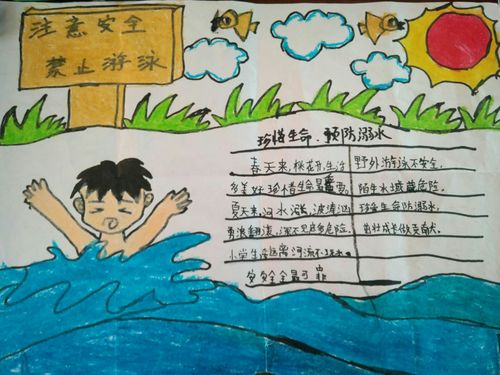 注意安全
禁止游泳
珍惜生命、预防溺水
春天来,桃花开,生活
多美好珍惜生命最重要。
夏天来,河水涨,波涛汹
勇浪翻滚,深不见底多危险。
小学生远离河流不玩水
安安全全最可靠
野外游泳不安全。
陌生水域藏危险。
珍爱生命防溺水。
茁壮成长做